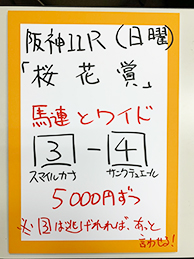 阪神11R(日曜)
「桜花賞」
馬連とワイド
3 - 4
スマイルカナ サンクテュエール
5000円ずつ
※3は逃げれれば、あっと
言わせる!